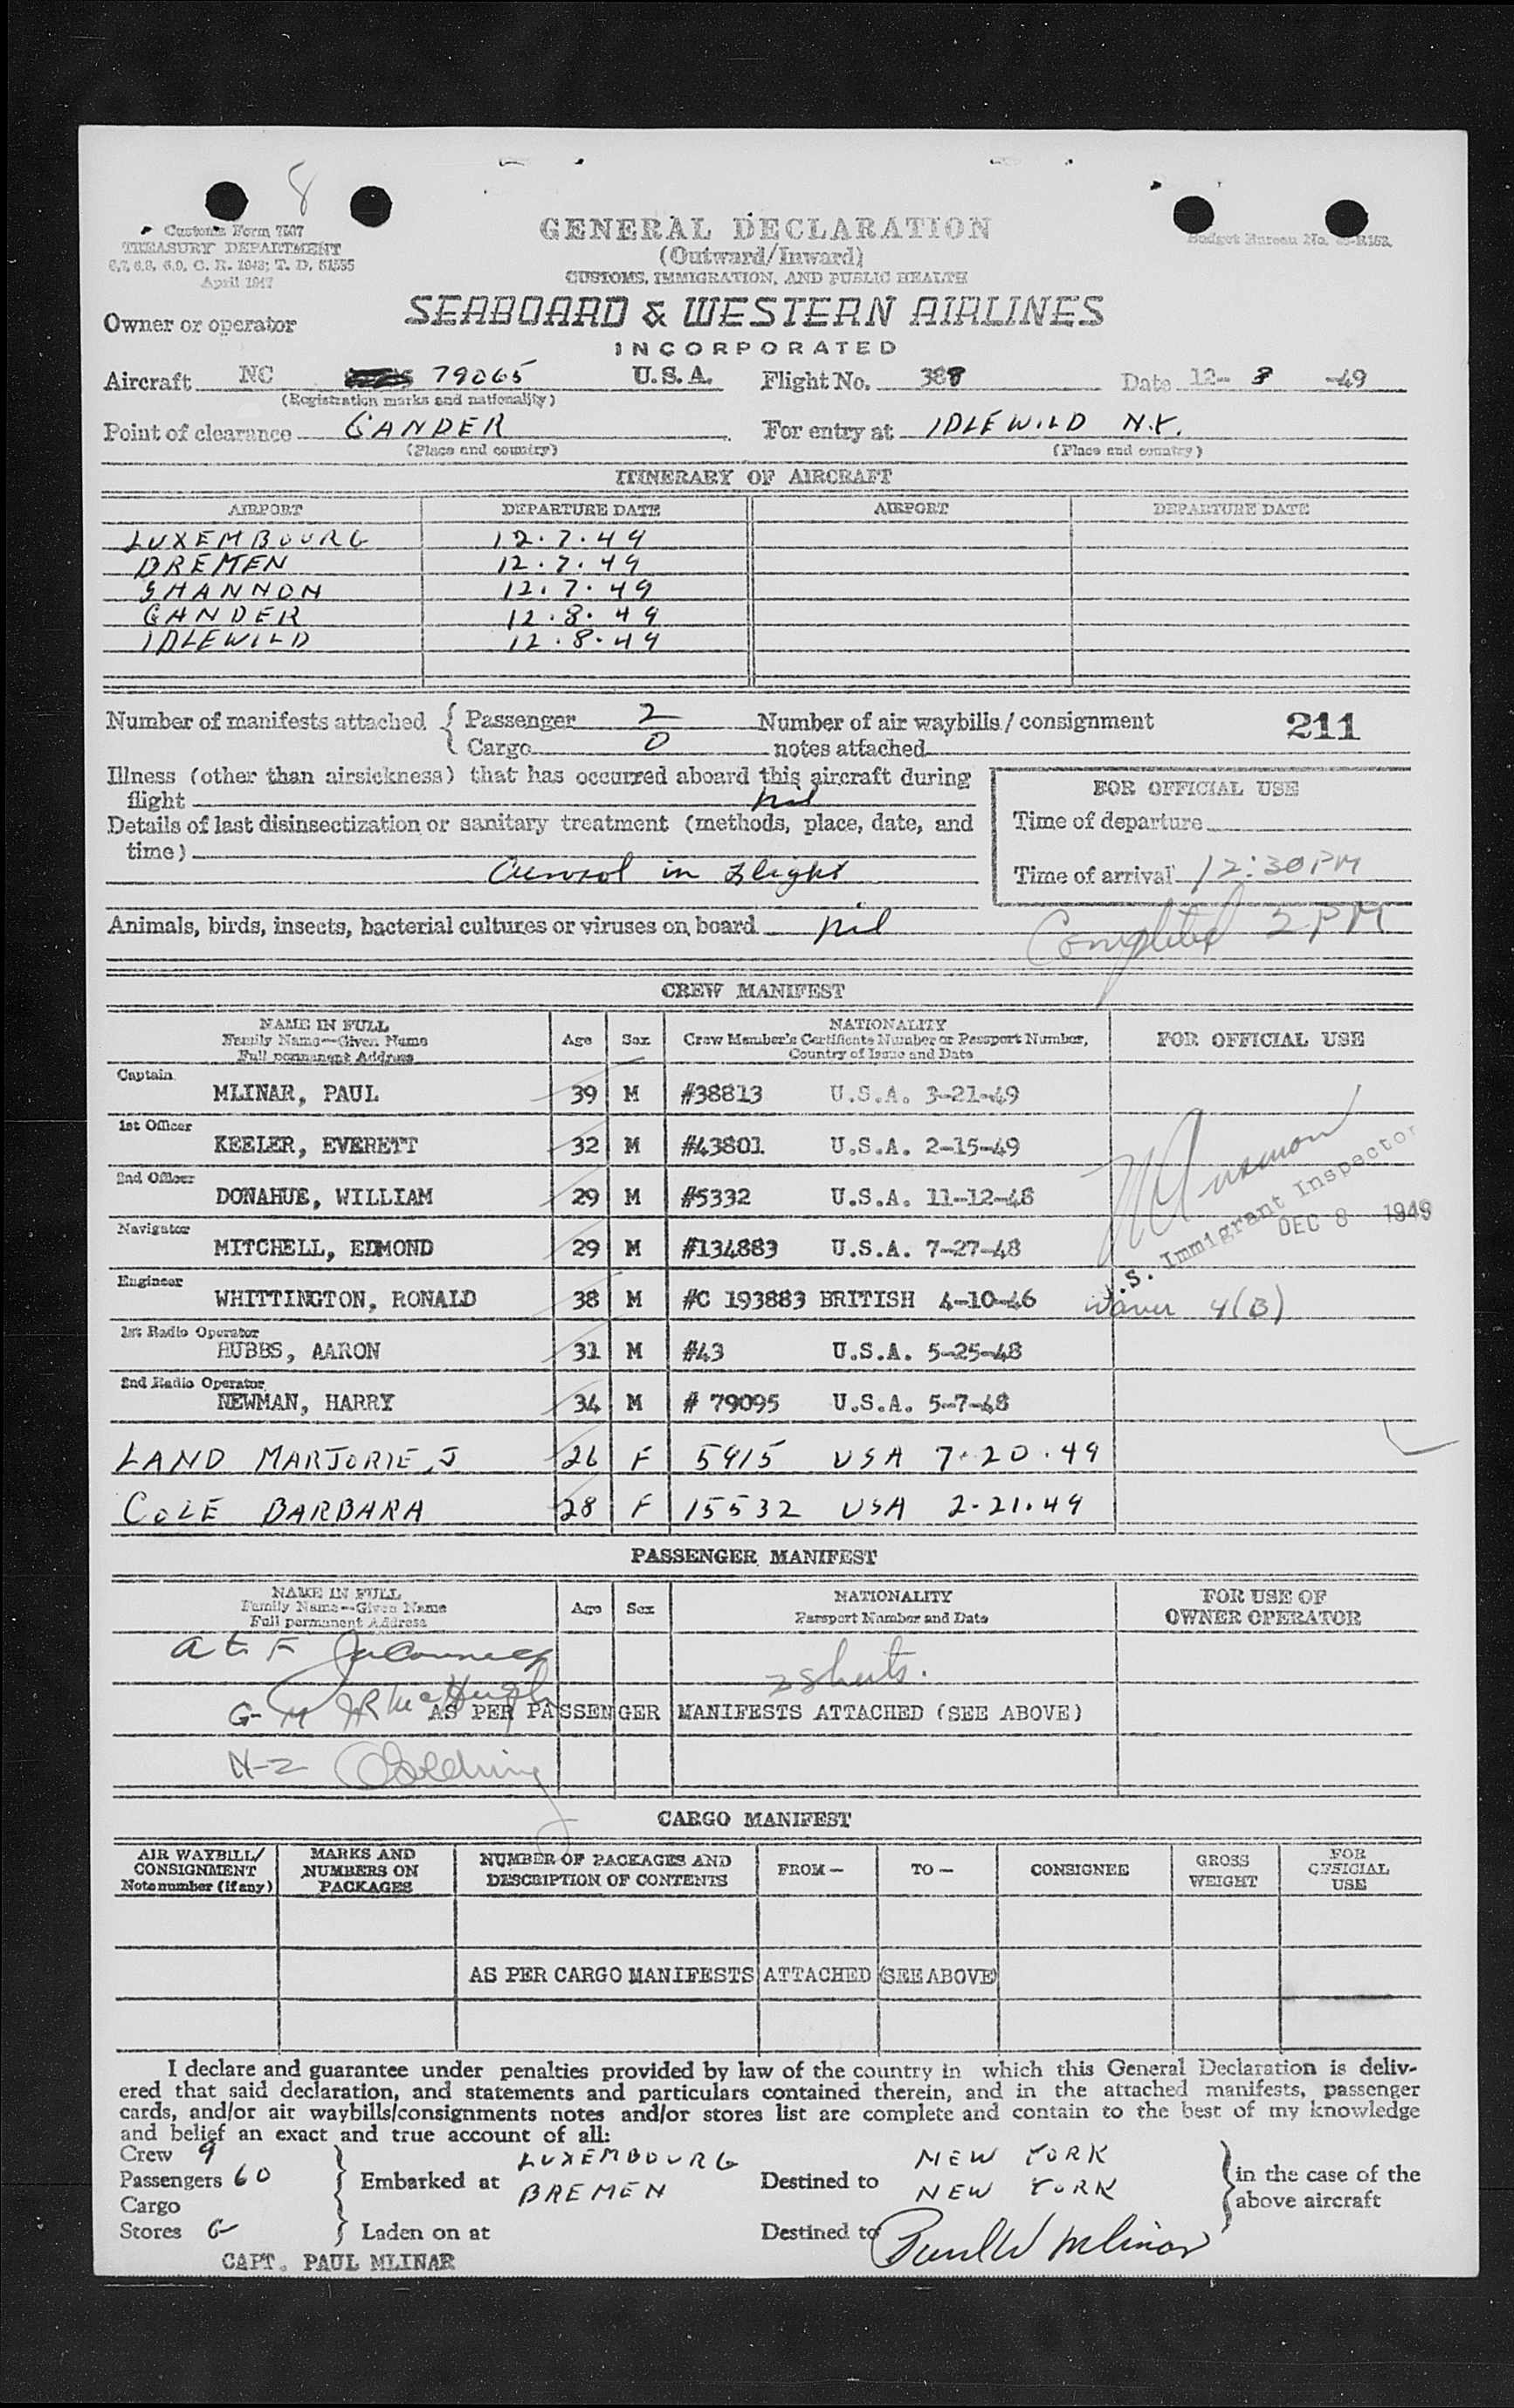 8
Customs Form 7507
TREASURY DEPARTMENT
6.7, 6.8, 6.9, C. R. 1943; T. D. 51535
April 1947
GENERAL DECLARATION
(Outward/Inward)
CUSTOMS, IMMIGRATION, AND PUBLIC HEALTH
Budget Bureau No.
SEABOARD & WESTERN AIRLINES
INCORPORATED
Owner or operator
Aircraft NC 79065 U.S.A. Flight No. 388 Date 12-8-49
(Registration marks and nationality)
Point of clearance GANDER For entry at IDLEWILD N.Y.
(Place and country) (Place and country)
ITINERARY OF AIRCRAFT
AIRPORT DEPARTURE DATE AIRPORT DEPARTURE DATE
LUXEMBOURG 12.7.49
BREMEN 12.7.49
SHANNON 12.7.49
GANDER 12.8.49
IDLEWILD 12.8.49
Number of manifests attached { Passenger 2 Number of air waybills/consignment 211
Cargo 0 notes attached
Illness (other than airsickness) that has occurred aboard this aircraft during
flight nil
Details of last disinsectization or sanitary treatment (methods, place, date, and
time)
Aerosol in flight
FOR OFFICIAL USE
Time of departure
Time of arrival 12:30 PM
Animals, birds, insects, bacterial cultures or viruses on board nil
Completed 2 PM
CREW MANIFEST
NAME IN FULL
Family Name--Given Name
Full permanent Address
Age Sex
NATIONALITY
Crew Member's Certificate Number or Passport Number,
Country of Issue and Date
FOR OFFICIAL USE
Captain
MLINAR, PAUL 39 M #38813 U.S.A. 3-21-49
1st Officer
KEELER, EVERETT 32 M #43801 U.S.A. 2-15-49
2nd Officer
DONAHUE, WILLIAM 29 M #5332 U.S.A. 11-12-48
Navigator
MITCHELL, EDMOND 29 M #134883 U.S.A. 7-27-48
U.S. Immigrant Inspector
DEC 8 1949
Engineer
WHITTINGTON, RONALD 38 M #C 193883 BRITISH 4-10-46 Waver 4(B)
1st Radio Operator
HUBBS, AARON 31 M #43 U.S.A. 5-25-48
2nd Radio Operator
NEWMAN, HARRY 34 M # 79095 U.S.A. 5-7-48
LAND MARJORIE, J 26 F 5915 USA 7.20.49
COLE BARBARA 28 F 15532 USA 2.21.49
PASSENGER MANIFEST
NAME IN FULL
Family Name--Given Name
Full permanent Address
Age Sex
NATIONALITY
Passport Number and Date
FOR USE OF
OWNER OPERATOR
2 sheets.
G-M JR McHugh
AS PER PASSENGER MANIFESTS ATTACHED (SEE ABOVE)
N-Z
CARGO MANIFEST
AIR WAYBILL/
CONSIGNMENT
Note number (if any)
MARKS AND
NUMBERS ON
PACKAGES
NUMBER OF PACKAGES AND
DESCRIPTION OF CONTENTS
FROM—
TO—
CONSIGNEE
GROSS
WEIGHT
FOR
OFFICIAL
USE
AS PER CARGO MANIFESTS ATTACHED (SEE ABOVE)
I declare and guarantee under penalties provided by law of the country in which this General Declaration is deliv-
ered that said declaration, and statements and particulars contained therein, and in the attached manifests, passenger
cards, and/or air waybills/consignments notes and/or stores list are complete and contain to the best of my knowledge
and belief an exact and true account of all:
Crew 9
Passengers 60
Cargo
Stores
Embarked at LUXEMBOURG
BREMEN
Destined to NEW YORK
NEW YORK
in the case of the
above aircraft
Laden on at Destined to
Paul W Mlinar
CAPT. PAUL MLINAR